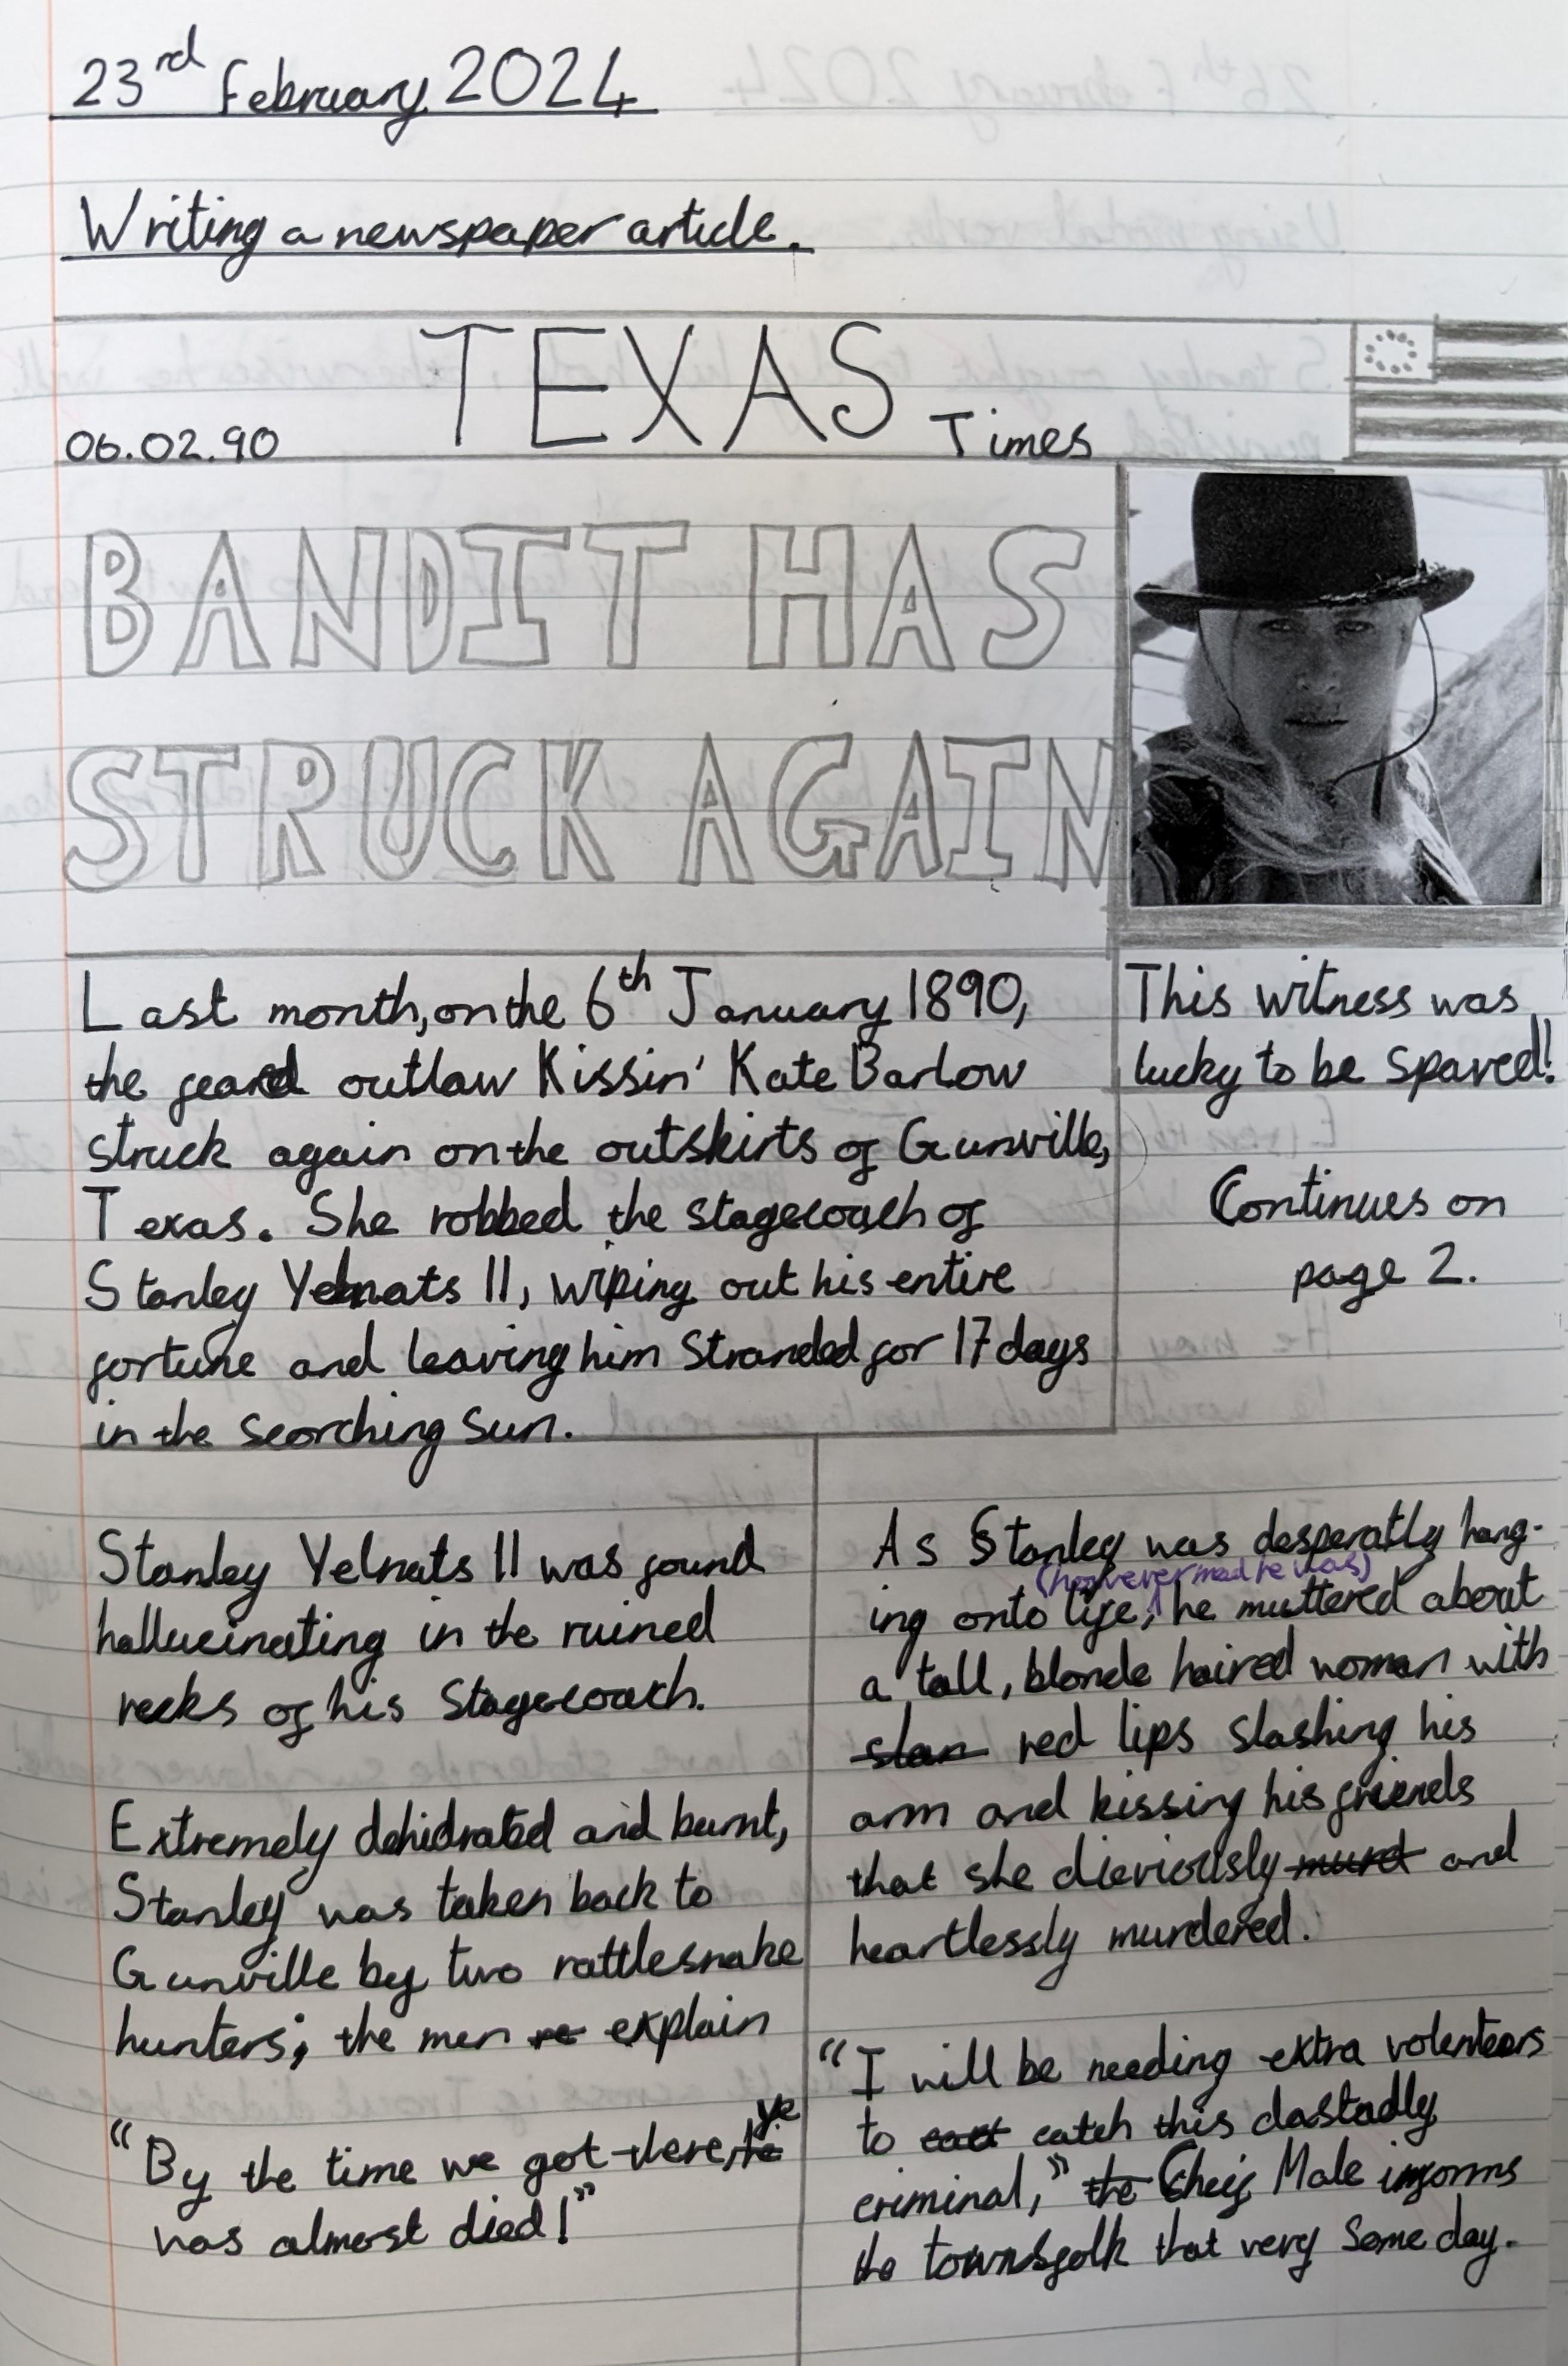 23rd February 2024
Writing a newspaper article.
TEXAS Times
06.02.90
BANDIT HAS
STRUCK AGAIN
Last month, on the 6th January 1890,
the feared outlaw Kissin' Kate Barlow
struck again on the outskirts of Gunville,
Texas. She robbed the stagecoach of
Stanley Yelnats II, wiping out his entire
fortune and leaving him stranded for 17 days
in the scorching sun.
This witness was
lucky to be spared!
Continues on
page 2.
Stanley Yelnats II was found
hallucinating in the ruined
recks of his stagecoach.
Extremely dehidrated and burnt,
Stanley was taken back to
Gunville by two rattlesnake
hunters; the men re explain
"By the time we got there, he ye
was almost died!"
As Stanley was desperatly hang-
ing onto life, (however mad he was) he muttered about
a tall, blonde haired woman with
slan red lips slashing his
arm and kissing his friends
that she dieviously murd and
heartlessly murdered.
"I will be needing extra volenteers
to cact catch this dastadly
criminal," the Cheif Male informs
the townsfolk that very same day.